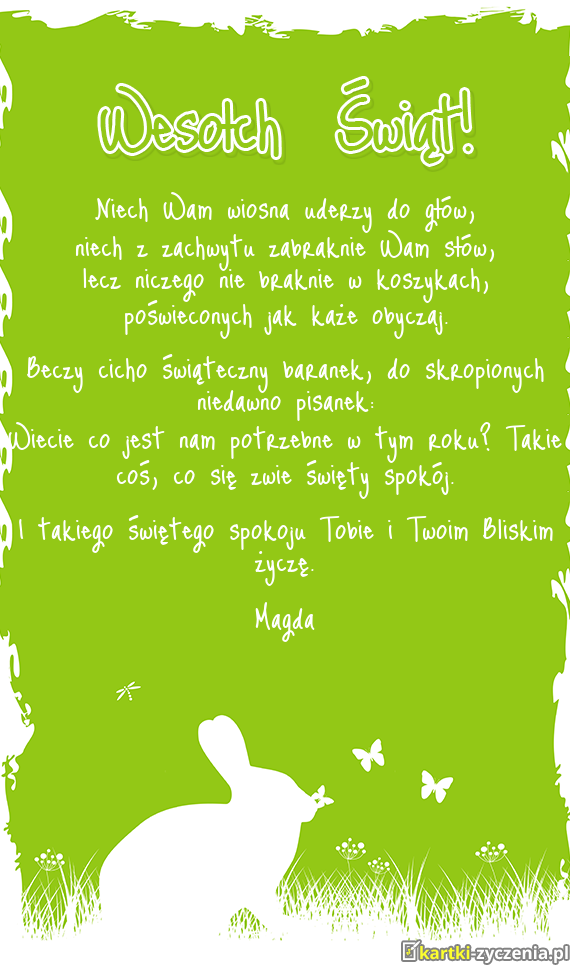 Wesołch Świąt!
Niech Wam wiosna uderzy do głów,
niech z zachwytu zabraknie Wam słów,
lecz niczego nie braknie w koszykach,
poświeconych jak każe obyczaj.
Beczy cicho świąteczny baranek, do skropionych
niedawno pisanek:
Wiecie co jest nam potrzebne w tym roku? Takie
coś, co się zwie święty spokój.
I takiego świętego spokoju Tobie i Twoim Bliskim
życzę.
Magda
kartki-zyczenia.pl